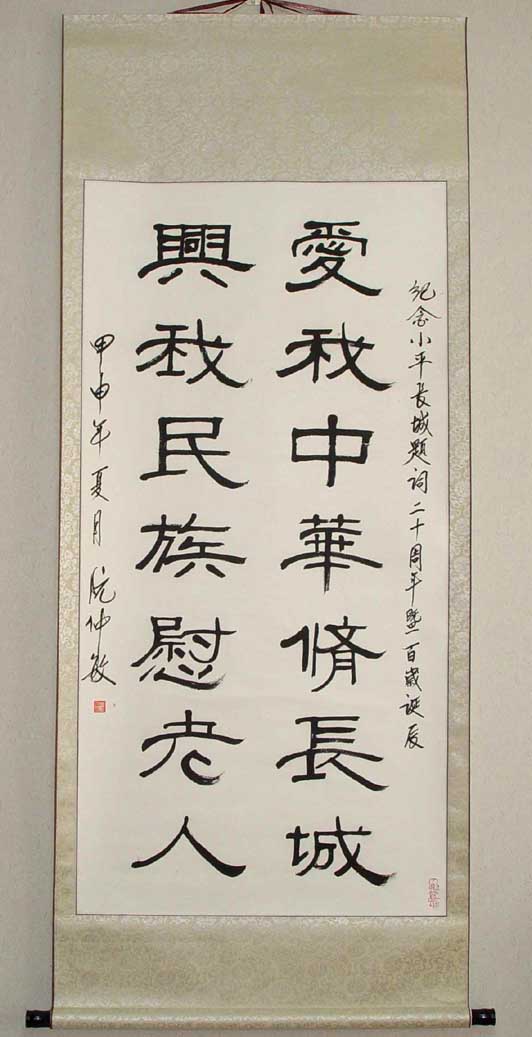 紀念小平長城題詞二十周年暨一百歲誕辰
愛我中華脩長城
興我民族慰老人
甲申年夏月 阮仲敏